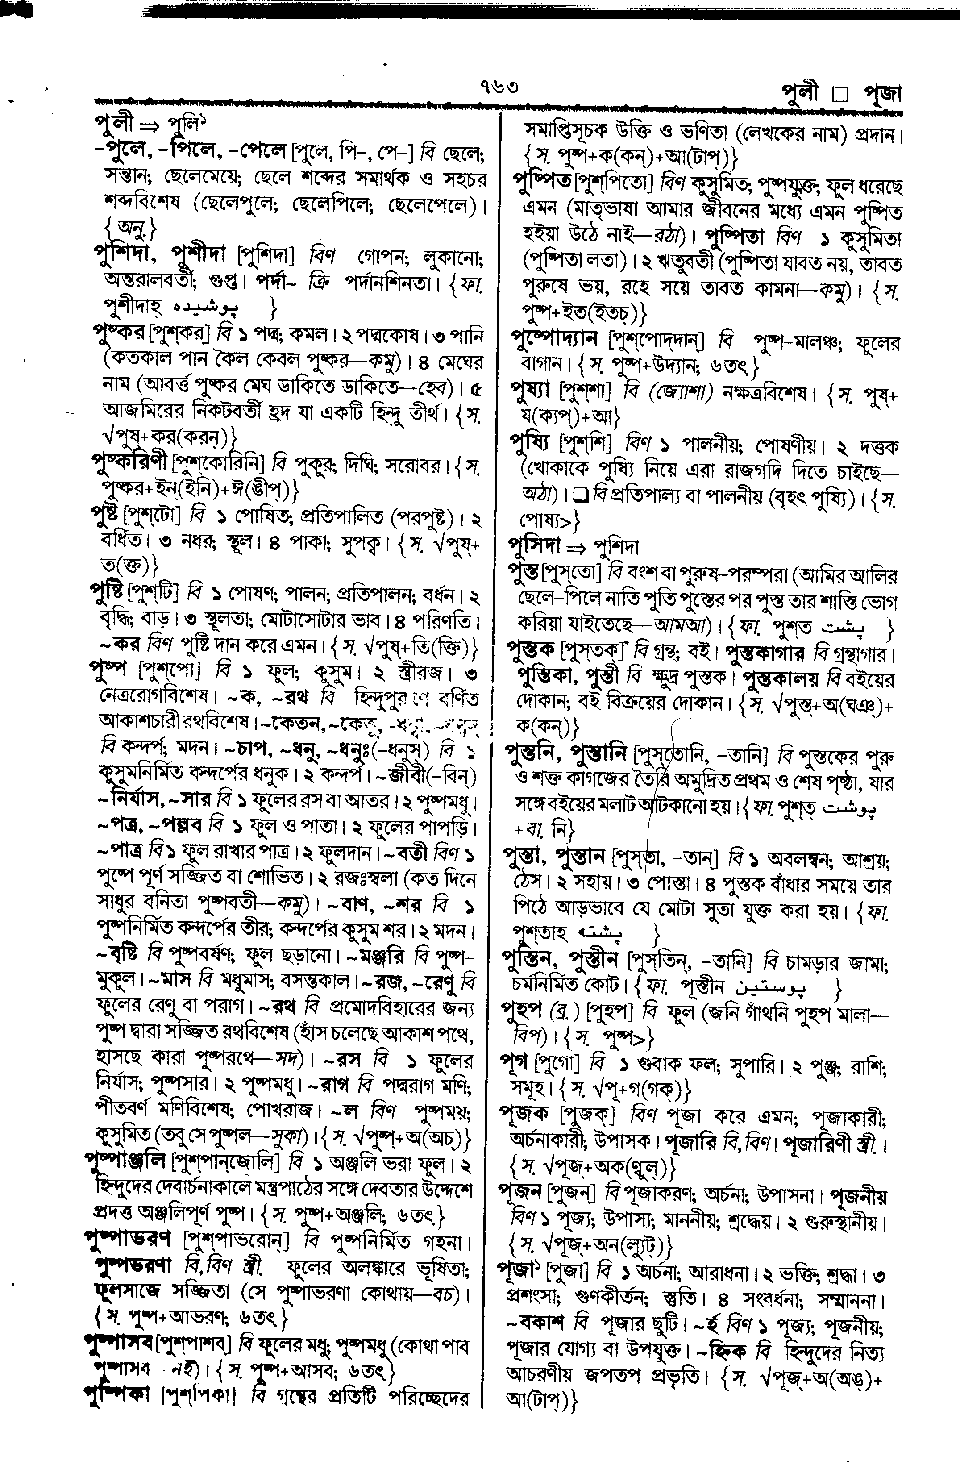 ৭৬৩
পুলী □ পূজা
পুলী ⇒ পুলি১
-পুলে, -পিলে, -পেলে [পুলে, পি-, পে-] বি ছেলে;
সন্তান; ছেলেমেয়ে; ছেলে শব্দের সমার্থক ও সহচর
শব্দবিশেষ (ছেলেপুলে; ছেলেপিলে; ছেলেপেলে)।
{অনু.}
পুশিদা, পুশীদা [পুশিদা] বিণ গোপন; লুকানো;
অন্তরালবর্তী; গুপ্ত। পর্দা~ ক্রি পর্দানশিনতা। {ফা.
পুশীদাহ্ پوشیده }
পুষ্কর [পুশ্‌কর্] বি ১ পদ্ম; কমল। ২ পদ্মকোষ। ৩ পানি
(কতকাল পান কৈল কেবল পুষ্কর—কমু)। ৪ মেঘের
নাম (আবর্ত্ত পুষ্কর মেঘ ডাকিতে ডাকিতে—হেব)। ৫
আজমিরের নিকটবর্তী হ্রদ যা একটি হিন্দু তীর্থ। {স.
√পুষ্+কর(করন্)}
পুষ্করিণী [পুশ্‌কোরিনি] বি পুকুর; দিঘি; সরোবর। {স.
পুষ্কর+ইন(ইনি)+ঈ(ঙীপ্)}
পুষ্ট [পুশ্‌টো] বি ১ পোষিত; প্রতিপালিত (পরপুষ্ট)। ২
বর্ধিত। ৩ নধর; স্থূল। ৪ পাকা; সুপক্ব। {স. √পুষ্+
ত(ক্ত)}
পুষ্টি [পুশ্‌টি] বি ১ পোষণ; পালন; প্রতিপালন; বর্ধন। ২
বৃদ্ধি; বাড়। ৩ স্থূলতা; মোটাসোটার ভাব। ৪ পরিণতি।
~কর বিণ পুষ্টি দান করে এমন। {স. √পুষ্+তি(ক্তি)}
পুষ্প [পুশ্‌পো] বি ১ ফুল; কুসুম। ২ স্ত্রীরজ। ৩
নেত্ররোগবিশেষ। ~ক, ~রথ বি হিন্দুপুরাণে বর্ণিত
আকাশচারী রথবিশেষ। ~কেতন, ~কেতু,
বি কন্দর্প; মদন। ~চাপ, ~ধনু, ~ধনুঃ(-ধনুস্) বি ১
কুসুমনির্মিত কন্দর্পের ধনুক। ২ কন্দর্প। ~জীবী(-বিন্)
~নির্যাস, ~সার বি ১ ফুলের রস বা আতর। ২ পুষ্পমধু।
~পত্র, ~পল্লব বি ১ ফুল ও পাতা। ২ ফুলের পাপড়ি।
~পাত্র বি ১ ফুল রাখার পাত্র। ২ ফুলদান। ~বতী বিণ ১
পুষ্পে পূর্ণ সজ্জিত বা শোভিত। ২ রজঃস্বলা (কত দিনে
সাধুর বনিতা পুষ্পবতী—কমু)। ~বাণ, ~শর বি ১
পুষ্পনির্মিত কন্দর্পের তীর; কন্দর্পের কুসুম শর। ২ মদন।
~বৃষ্টি বি পুষ্পবর্ষণ; ফুল ছড়ানো। ~মঞ্জরি বি পুষ্প-
মুকুল। ~মাস বি মধুমাস; বসন্তকাল। ~রজ, ~রেণু বি
ফুলের রেণু বা পরাগ। ~রথ বি প্রমোদবিহারের জন্য
পুষ্প দ্বারা সজ্জিত রথবিশেষ (হাঁস চলেছে আকাশ পথে,
হাসছে কারা পুষ্পরথে—সদ)। ~রস বি ১ ফুলের
নির্যাস; পুষ্পসার। ২ পুষ্পমধু। ~রাগ বি পদ্মরাগ মণি;
পীতবর্ণ মণিবিশেষ; পোখরাজ। ~ল বিণ পুষ্পময়;
কুসুমিত (তবু সে পুষ্পল—সুকা)। {স. √পুষ্প+অ(অচ্)}
পুষ্পাঞ্জলি [পুশ্‌পান্‌জোলি] বি ১ অঞ্জলি ভরা ফুল। ২
হিন্দুদের দেবার্চনাকালে মন্ত্রপাঠের সঙ্গে দেবতার উদ্দেশে
প্রদত্ত অঞ্জলিপূর্ণ পুষ্প। {স. পুষ্প+অঞ্জলি; ৬তৎ}
পুষ্পাভরণ [পুশ্‌পাভরোন্] বি পুষ্পনির্মিত গহনা।
পুষ্পভরণা বি,বিণ স্ত্রী. ফুলের অলঙ্কারে ভূষিতা;
ফুলসাজে সজ্জিতা (সে পুষ্পাভরণা কোথায়—বচ)।
{স. পুষ্প+আভরণ; ৬তৎ}
পুষ্পাসব [পুশ্‌পাশব্] বি ফুলের মধু; পুষ্পমধু (কোথা পাব
পুষ্পাসব -নই)। {স. পুষ্প+আসব; ৬তৎ}
পুষ্পিকা [পুশ্‌পিকা] বি গ্রন্থের প্রতিটি পরিচ্ছেদের
সমাপ্তিসূচক উক্তি ও ভণিতা (লেখকের নাম) প্রদান।
{স. পুষ্প+ক(কন্)+আ(টাপ্)}
পুষ্পিত [পুশ্‌পিতো] বিণ কুসুমিত; পুষ্পযুক্ত; ফুল ধরেছে
এমন (মাতৃভাষা আমার জীবনের মধ্যে এমন পুষ্পিত
হইয়া উঠে নাই—রঠা)। পুষ্পিতা বিণ ১ কুসুমিতা
(পুষ্পিতা লতা)। ২ ঋতুবতী (পুষ্পিতা যাবত নয়, তাবত
পুরুষে ভয়, রহে সয়ে তাবত কামনা—কমু)। {স.
পুষ্প+ইত(ইতচ্)}
পুষ্পোদ্যান [পুশ্‌পোদ্‌দান্] বি পুষ্প-মালঞ্চ; ফুলের
বাগান। {স. পুষ্প+উদ্যান; ৬তৎ}
পুষ্যা [পুশ্‌শা] বি (জ্যোশা) নক্ষত্রবিশেষ। {স. পুষ্+
য(ক্যপ্)+আ}
পুষ্যি [পুশ্‌শি] বিণ ১ পালনীয়; পোষণীয়। ২ দত্তক
(খোকাকে পুষ্যি নিয়ে এরা রাজগদি দিতে চাইছে—
অঠা)। ❏ বি প্রতিপাল্য বা পালনীয় (বৃহৎ পুষ্যি)। {স.
পোষ্য>}
পুসিদা ⇒ পুশিদা
পুস্ত [পুস্‌তো] বি বংশ বা পুরুষ-পরম্পরা (আমির আলির
ছেলে-পিলে নাতি পুতি পুস্তের পর পুস্ত তার শাস্তি ভোগ
করিয়া যাইতেছে—আমআ)। {ফা. পুশ্‌ত پشت }
পুস্তক [পুস্‌তক্] বি গ্রন্থ; বই। পুস্তকাগার বি গ্রন্থাগার।
পুস্তিকা, পুস্তী বি ক্ষুদ্র পুস্তক। পুস্তকালয় বি বইয়ের
দোকান; বই বিক্রয়ের দোকান। {স. √পুস্ত+অ(ঘঞ্)+
ক(কন্)}
পুস্তনি, পুস্তানি [পুস্‌তোনি, -তানি] বি পুস্তকের পুরু
ও শক্ত কাগজের তৈরি অমুদ্রিত প্রথম ও শেষ পৃষ্ঠা, যার
সঙ্গে বইয়ের মলাট আটকানো হয়। {ফা. পুশ্‌ত پوشت
+বা. নি}
পুস্তা, পুস্তান [পুস্‌তা, -তান্] বি ১ অবলম্বন; আশ্রয়;
ঠেস। ২ সহায়। ৩ পোস্তা। ৪ পুস্তক বাঁধার সময়ে তার
পিঠে আড়ভাবে যে মোটা সুতা যুক্ত করা হয়। {ফা.
পুশ্‌তাহ্ پشته }
পুস্তিন, পুস্তীন [পুস্‌তিন্, -তানি] বি চামড়ার জামা;
চর্মনির্মিত কোট। {ফা. পূস্তীন پوستین }
পুহপ (ব্র.) [পুহপ্] বি ফুল (জনি গাঁথনি পুহপ মালা—
বিপ)। {স. পুষ্প>}
পূগ [পুগো] বি ১ গুবাক ফল; সুপারি। ২ পুঞ্জ; রাশি;
সমূহ। {স. √পূ+গ(গক্)}
পূজক [পুজক্] বিণ পূজা করে এমন; পূজাকারী;
অর্চনাকারী; উপাসক। পূজারি বি,বিণ। পূজারিণী স্ত্রী.।
{স. √পূজ্+অক(ণ্বুল্)}
পূজন [পুজন্] বি পূজাকরণ; অর্চনা; উপাসনা। পূজনীয়
বিণ ১ পূজ্য; উপাস্য; মাননীয়; শ্রদ্ধেয়। ২ গুরুস্থানীয়।
{স. √পূজ্+অন(ল্যুট্)}
পূজা১ [পুজা] বি ১ অর্চনা; আরাধনা। ২ ভক্তি; শ্রদ্ধা। ৩
প্রশংসা; গুণকীর্তন; স্তুতি। ৪ সংবর্ধনা; সম্মাননা।
~বকাশ বি পূজার ছুটি। ~র্হ বিণ ১ পূজ্য; পূজনীয়;
পূজার যোগ্য বা উপযুক্ত। ~হ্নিক বি হিন্দুদের নিত্য
আচরণীয় জপতপ প্রভৃতি। {স. √পূজ্+অ(অঙ্)+
আ(টাপ্)}